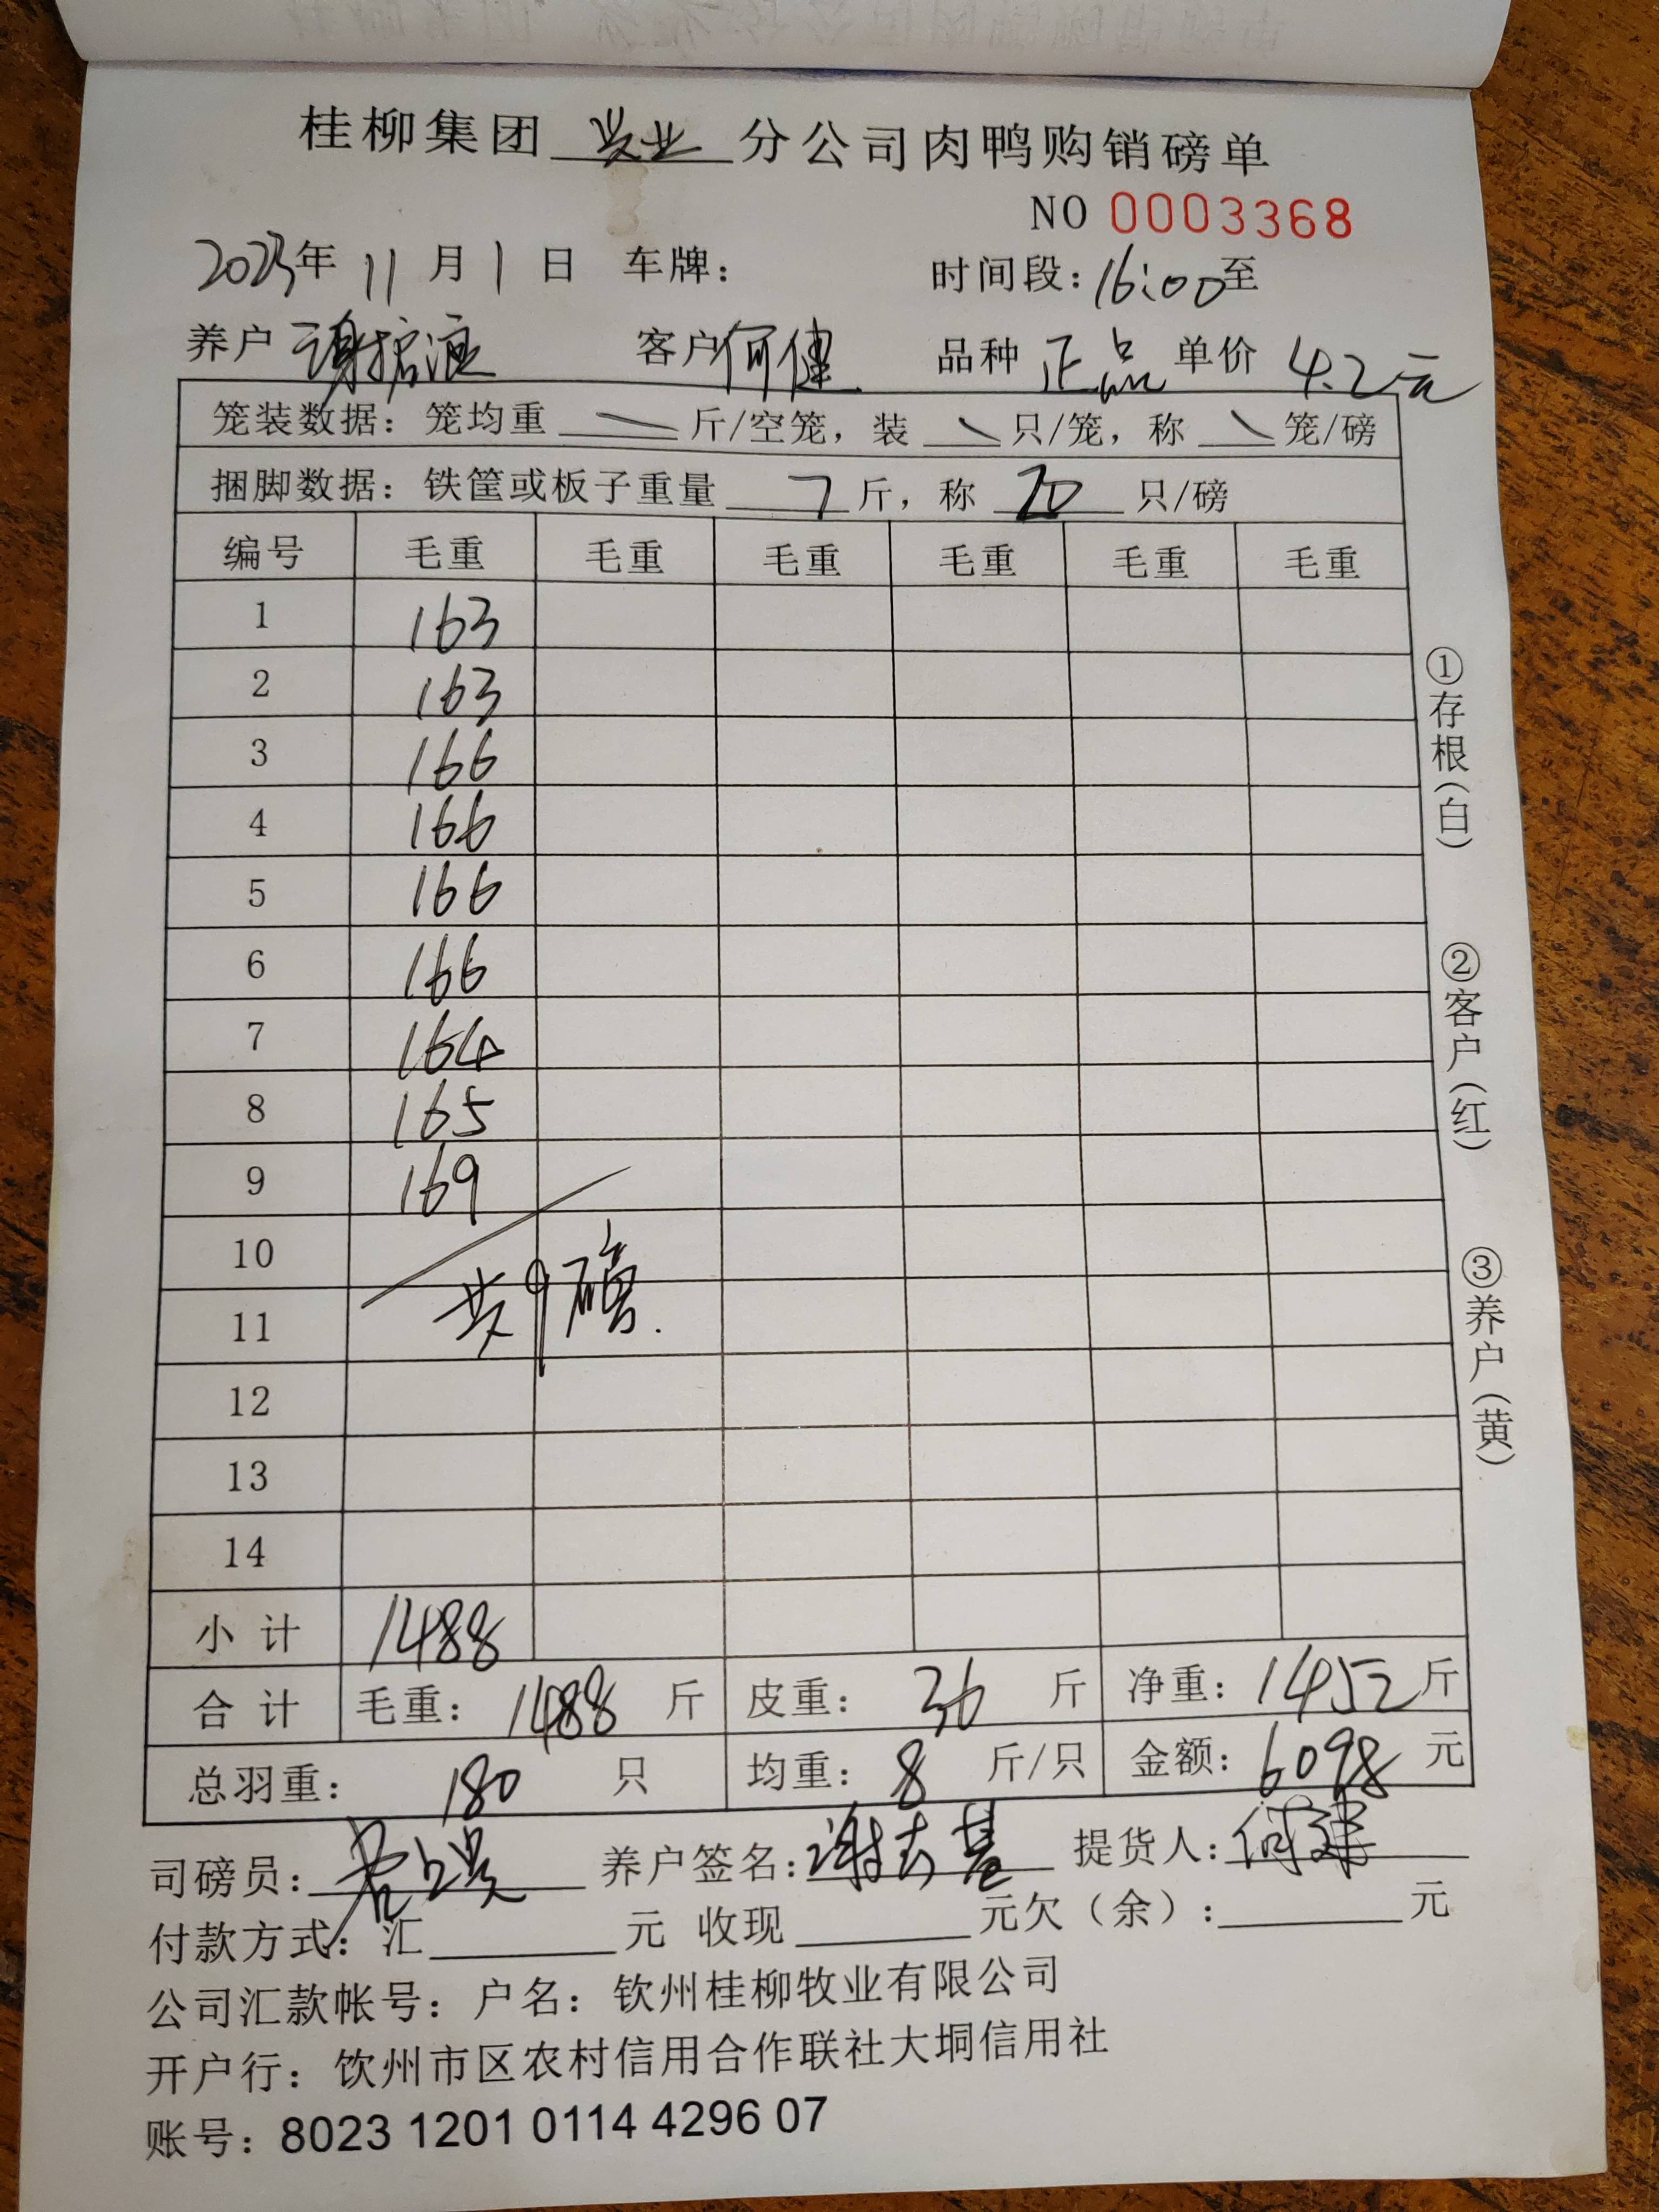 桂柳集团 兴业 分公司肉鸭购销磅单
NO 0003368
2023年 11 月 1 日 车牌: 时间段:16:00至
养户 谢 客户 何健 品种 正品 单价 4.2元
笼装数据: 笼均重 斤/空笼, 装 只/笼, 称 笼/磅
捆脚数据: 铁筐或板子重量 7 斤, 称 20 只/磅
编号 毛重 毛重 毛重 毛重 毛重 毛重
1 163
2 163
3 166
4 166
5 166
6 166
7 164
8 165
9 169
10
共9磅.
11
12
13
14
小计 1488
合计 毛重: 1488 斤 皮重: 36 斤 净重: 1452斤
总羽重: 180 只 均重: 8 斤/只 金额: 6098 元
司磅员: 养户签名: 谢 提货人: 何健
付款方式: 汇 元 收现 元欠(余): 元
公司汇款帐号: 户名: 钦州桂柳牧业有限公司
开户行: 钦州市区农村信用合作联社大垌信用社
账号: 8023 1201 0114 4296 07
①存根(白)
②客户(红)
③养户(黄)